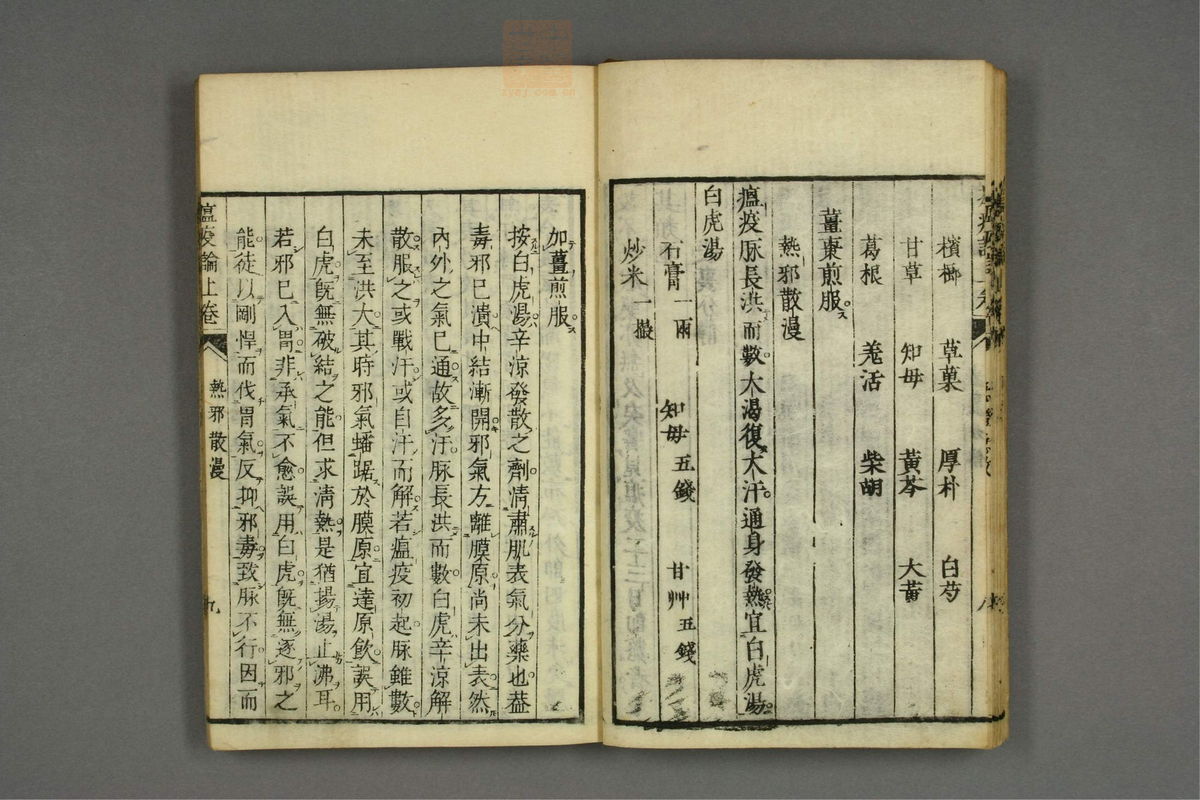 檳榔 草菓 厚朴 白芍
甘草 知母 黃芩 大黃
葛根 羗活 柴胡
薑棗煎服
熱邪散漫
瘟疫脉長洪而數大渴復大汗通身發熱宜白虎湯
白虎湯
石膏一兩 知母五錢 甘艸五錢
炒米一撮
加薑煎服
按白虎湯辛涼發散之劑清肅肌表氣分藥也葢
毒邪已潰中結漸開邪氣方離膜原尚未出表然
內外之氣已通故多汗脉長洪而數白虎辛涼解
散服之或戰汗或自汗而解若瘟疫初起脉雖數
未至洪大其時邪氣蟠踞於膜原宜達原飲誤用
白虎旣無破結之能但求清熱是猶揚湯止沸耳
若邪已入胃非承氣不愈誤用白虎旣無逐邪之
能徒以剛悍而伐胃氣反抑邪毒致脉不行因而
瘟疫論上卷 熱邪散漫 九
zysj.com.cn